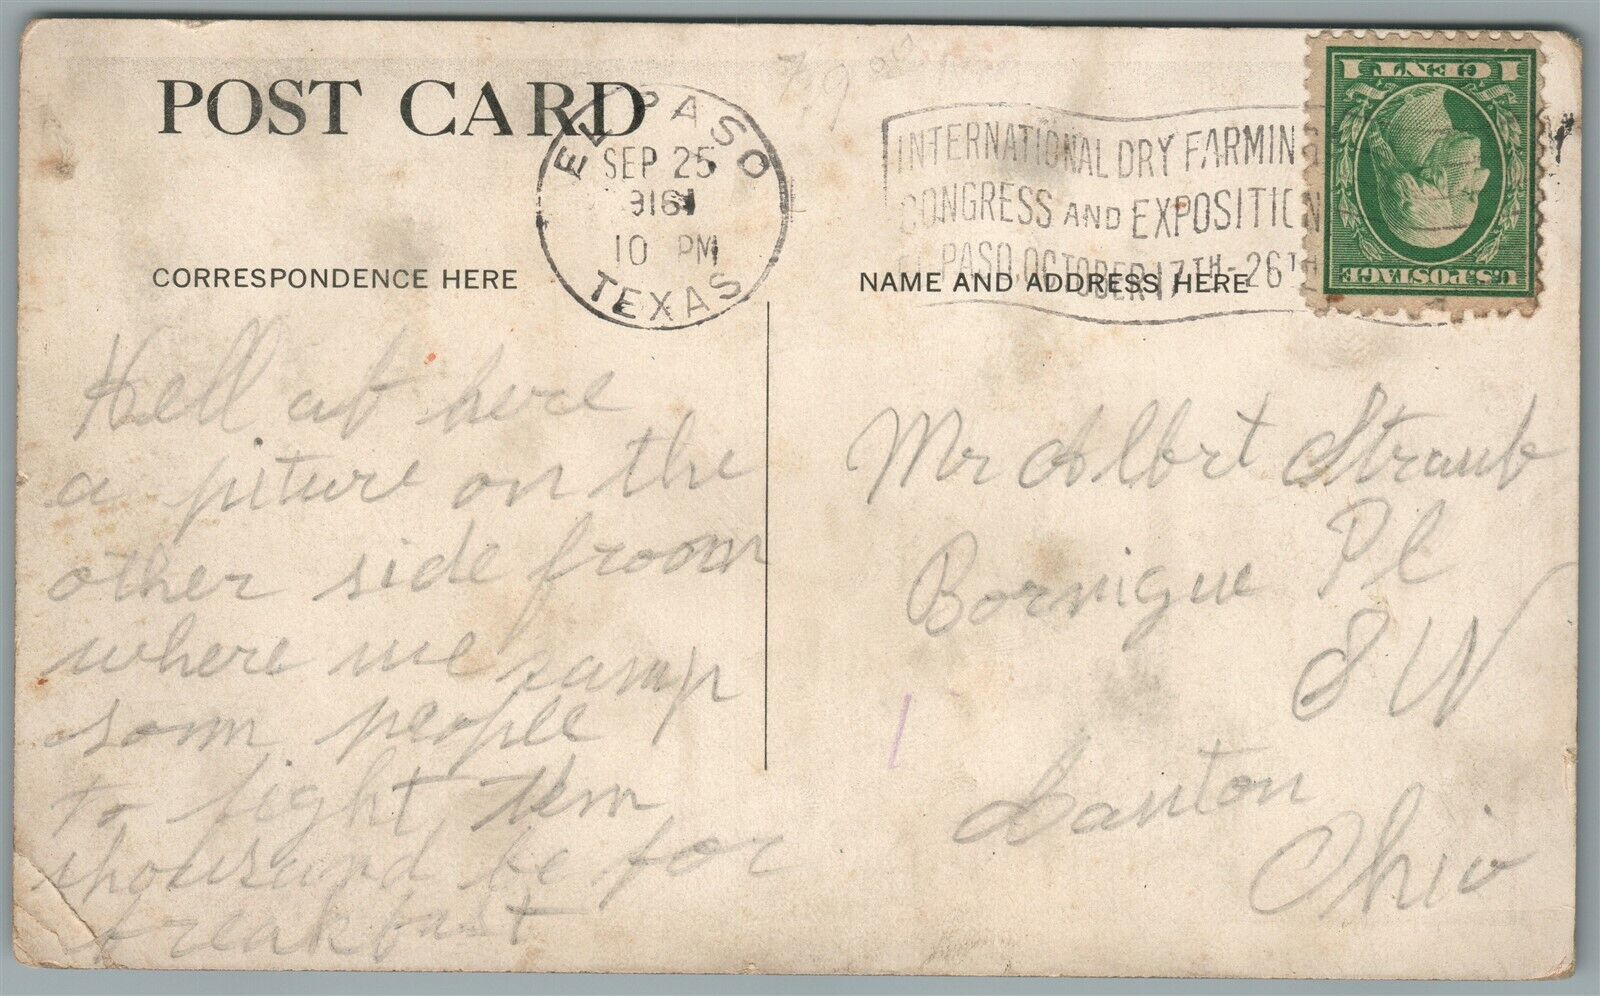 POST CARD
EL PASO
SEP 25
10 PM
TEXAS
INTERNATIONAL DRY FARMIN
CONGRESS AND EXPOSITION
EL PASO, OCTOBER 17TH - 26TH
1 CENT 1
U.S. POSTAGE
CORRESPONDENCE HERE
NAME AND ADDRESS HERE
Hell at here
a piture on the
other side froom
where we camp
som people
to fight them
thousand be for
breakfast
Mr Albert Straub
Bornigue Pl
S W
Canton
Ohio